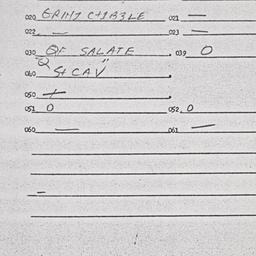 020 GRIM7 C+1B3LE 021 —
022 — 023 —
030 QF SALATE 039 O
040 "Q St CAV" .
050 — .
051 O 052 O
060 — 061 —
—